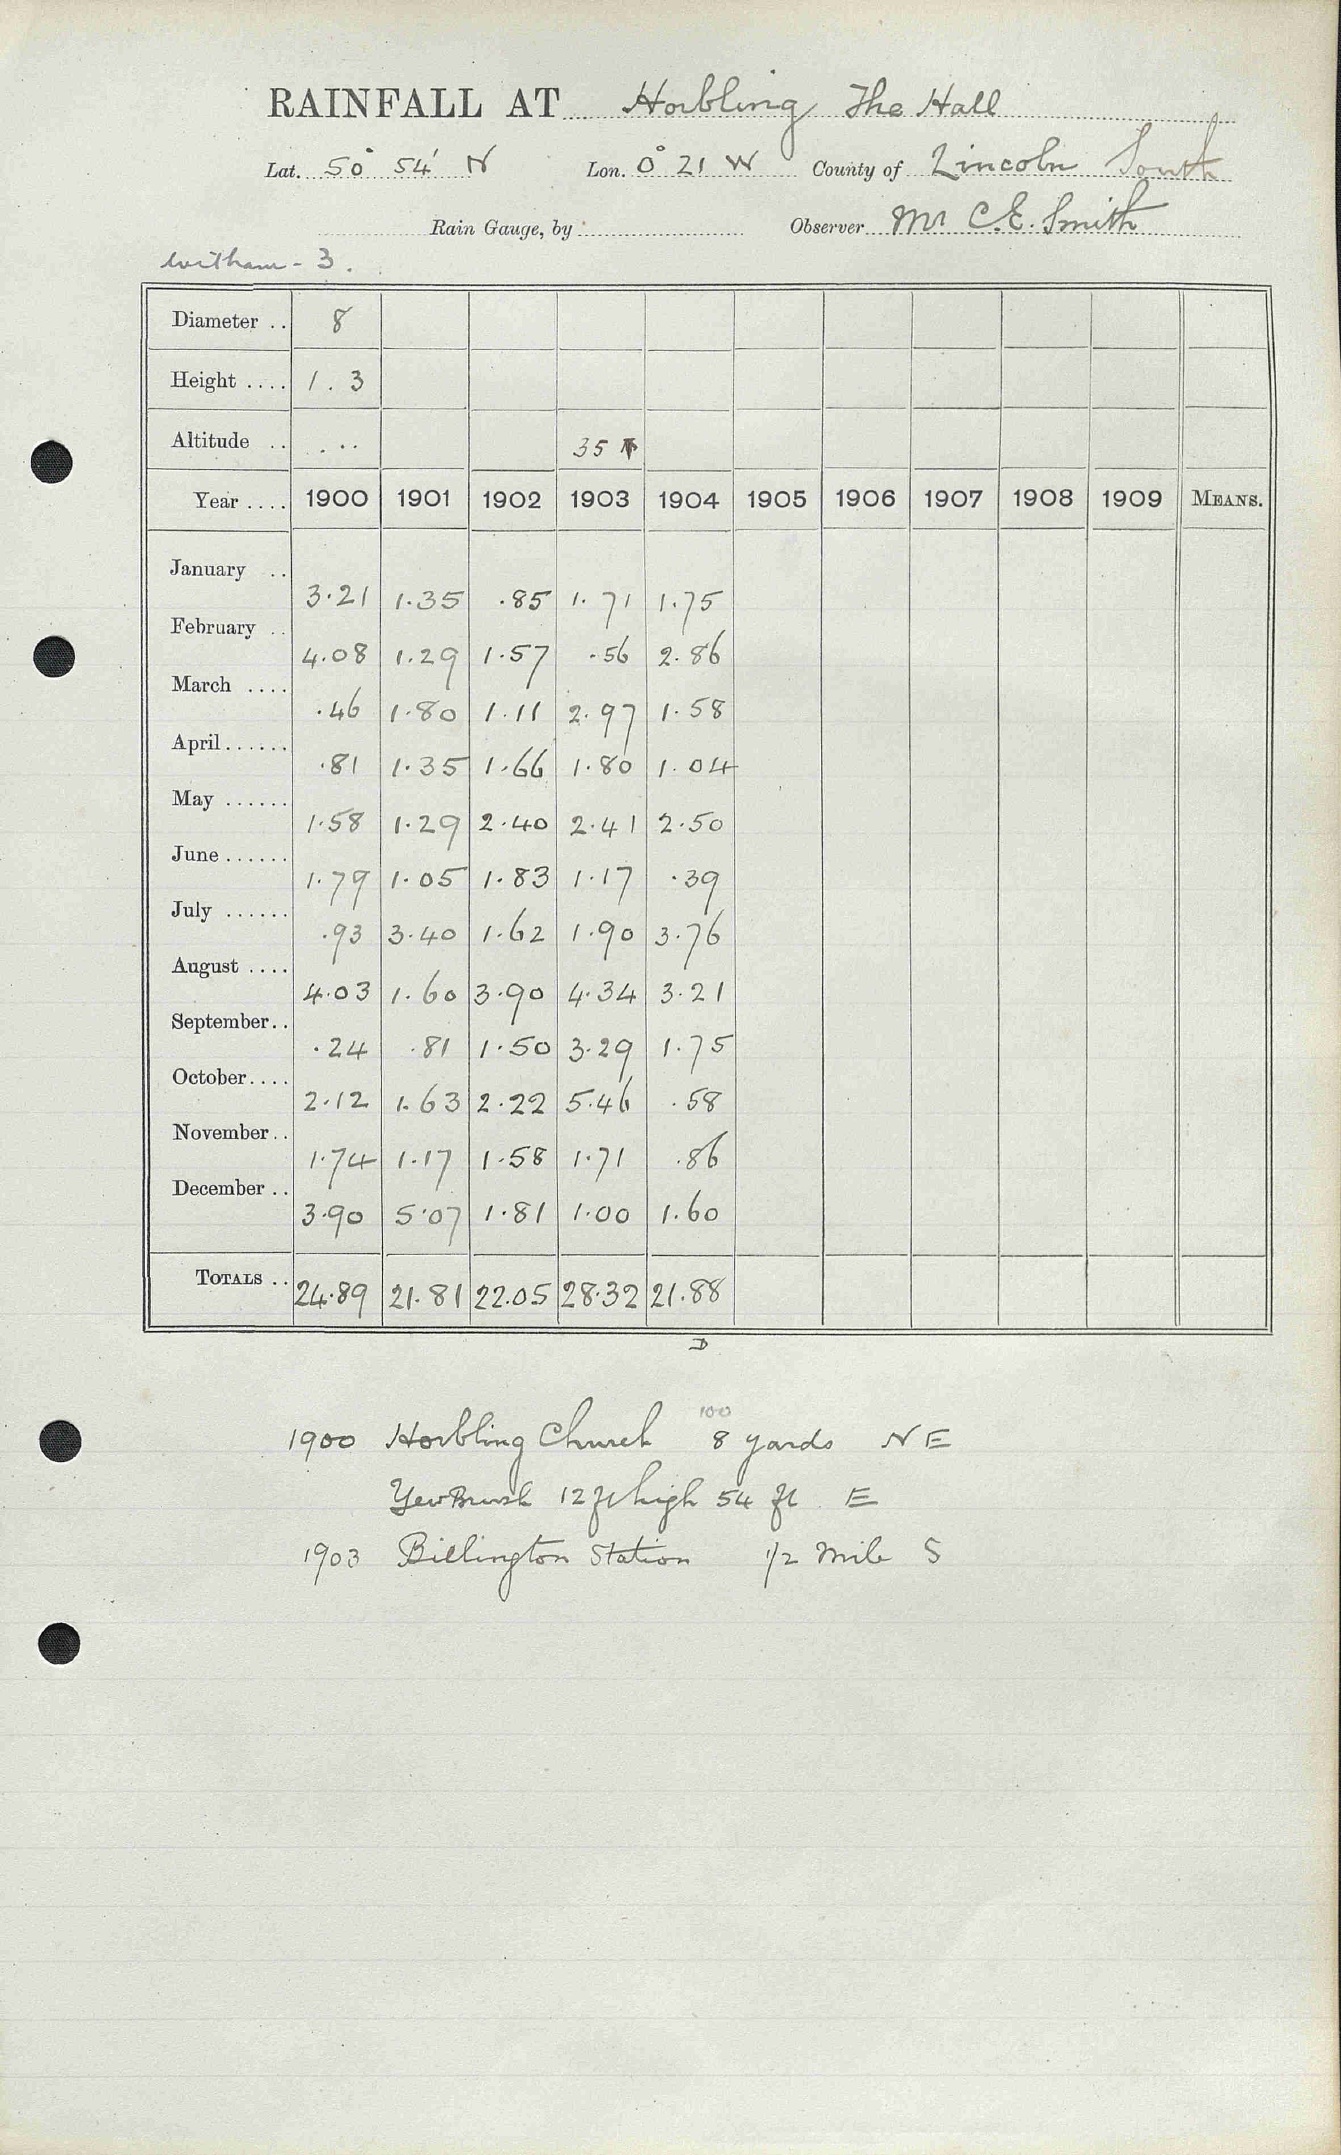 RAINFALL AT Horbling The Hall
Lat. 50° 54' N Lon. 0° 21 W County of Lincoln South
Rain Gauge, by Observer Mr C.E. Smith
Witham - 3.
Diameter .. 8
Height .... 1.3
Altitude .. ... 35
Year .... 1900 1901 1902 1903 1904 1905 1906 1907 1908 1909 MEANS.
January .. 3.21 1.35 .85 1.71 1.75
February .. 4.08 1.29 1.57 .56 2.86
March .... .46 1.80 1.11 2.97 1.58
April...... .81 1.35 1.66 1.80 1.04
May ...... 1.58 1.29 2.40 2.41 2.50
June...... 1.79 1.05 1.83 1.17 .39
July ...... .93 3.40 1.62 1.90 3.76
August .... 4.03 1.60 3.90 4.34 3.21
September.. .24 .81 1.50 3.29 1.75
October.... 2.12 1.63 2.22 5.46 .58
November.. 1.74 1.17 1.58 1.71 .86
December .. 3.90 5.07 1.81 1.00 1.60
TOTALS .. 24.89 21.81 22.05 28.32 21.88
D
100
1900 Horbling Church 8 yards NE
Yew Bush 12 ft high 54 ft E
1903 Billington Station 1/2 mile S